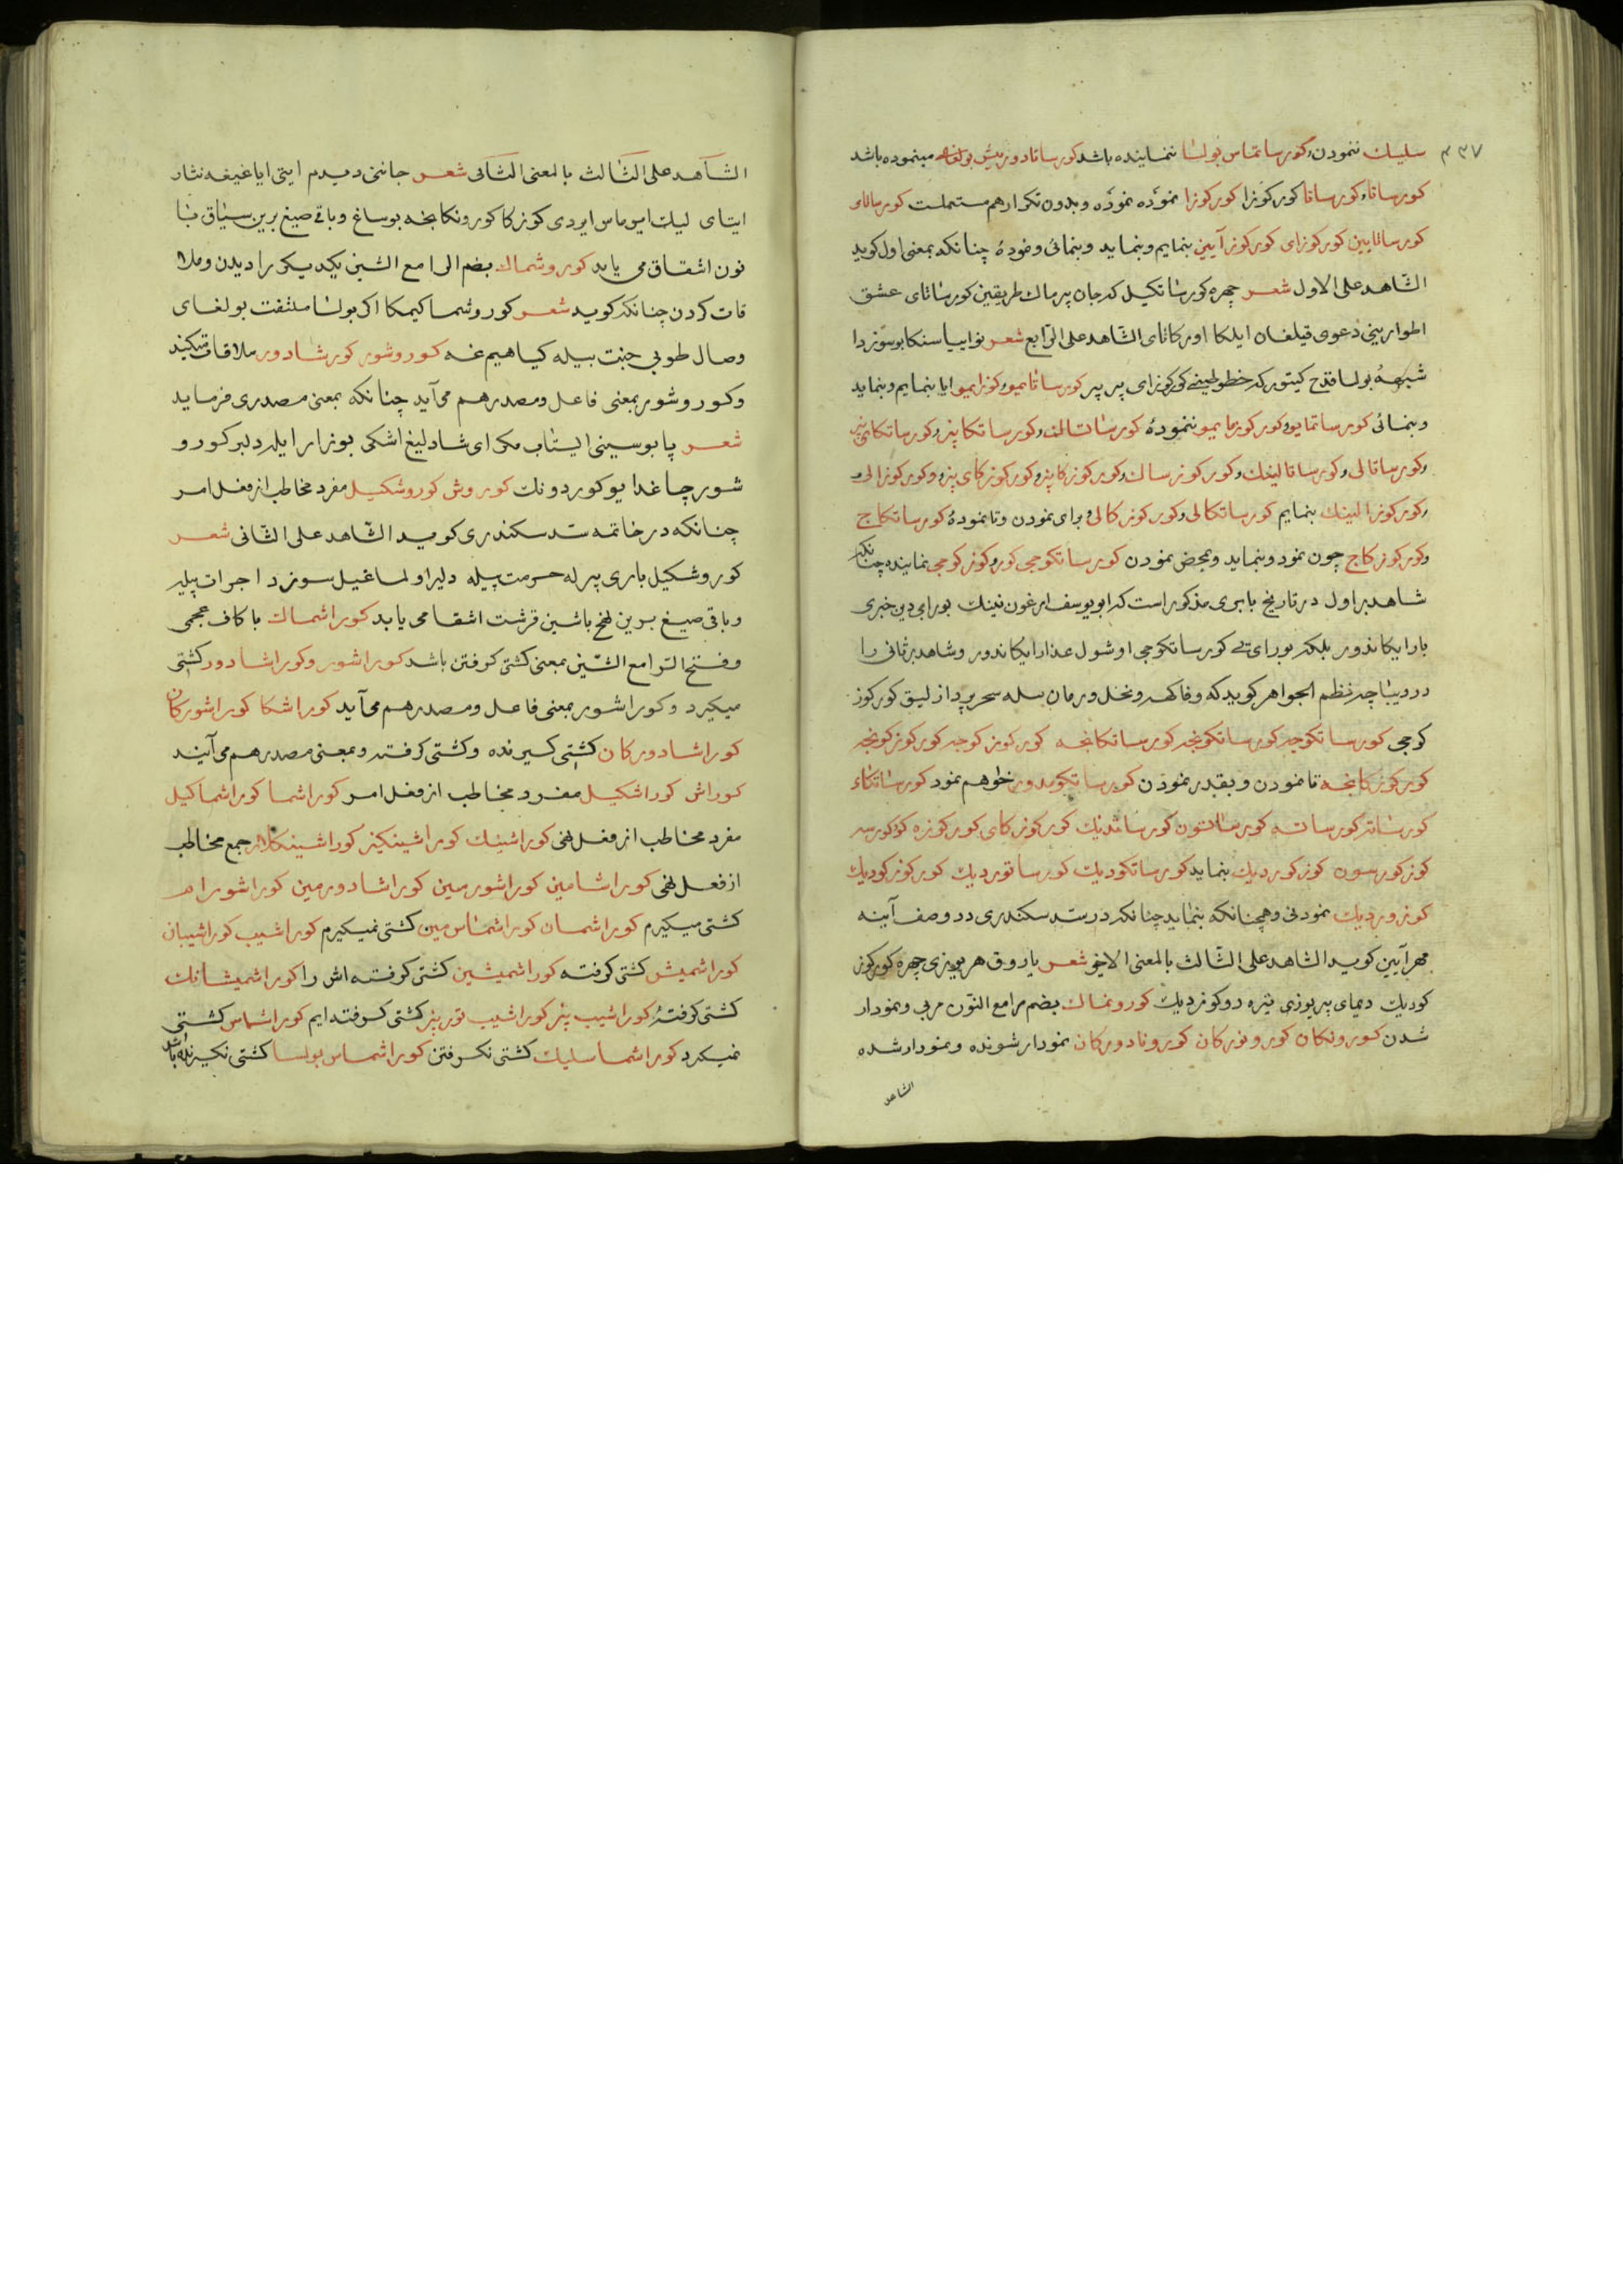 ۲۳۷
سلیك ننمودن وکورساتماس بولسا ننماینده باشد کورساتادور میش بولغاه مینموده باشد
کورساتا وکورساتا کورکوزا کورکوزا نموده نموده وبدون تکرار هم مستعملست کورساتای
کورساتایین کورکوزای کورکوزآیین بنمایم وبنماید وبنمائی ونمودهٔ چنانکه بمعنی اول کوید
الشاهد علی الاول شعر چهره کورساتکیل که جان پرماك طریقین کورساتای عشق
اطوارینی دعوی قیلغان ایلکا اورکاتای الشاهد علی الرابع شعر نوایسا سنکا بوسوزدا
شبههٔ بولسا قدح کیتورکه خطوطینی کورکوزای بیر بیر کورساتایمو وکوزایمو ایا بنمایم وبنماید
وبنمائی کورساتمایو وکورکوزمایمو ننمودهٔ کورساتالنك وکورساتکابیز وکورساتکای بیز
وکورساتالی وکورساتالینك وکورکوزسالك وکورکوزکابیز وکورکوزکای بیز وکورکوزالی و
وکورکوزالینك بنمایم کورساتکالی وکورکوزکالی و برای نمودن وتا نمودهٔ کورساتکاج
وکورکوزکاج چون نمود وبنماید وبمحض نمودن کورساتکوجی کورکوزکوجی نماینده چنانکه
شاهد بر اول در تاریخ بابری مذکور است که ابو یوسف ارغون نینك بورای دین خبری
بارایکاندور بلکه بورای نی کورساتکوجی اوشول عذار ایکاندور وشاهد بر ثانی را
در دیباچه نظم الجواهر کوید که وفاکهه ونخل ورمان بیله سحر پردازلیق کورکوز
کوجی کورساتکوجه کورساتکونجه کورساتکانجه کورکوزکوجه کورکوزکونجه
کورکوزکانجه تا نمودن وبقدر نمودن کورساتکومدور خواهم نمود کورساتکاء
کورساتر کورساته کورساتسون کورساتدنیك کورکوزکای کورکوزه
کوزکورسون کوزکوردیك بنماید کورساتکودیك کورساتوردیك کورکوزکودیك
کوزوردیك نمودنی وهمچنانکه بنماید چنانکه در سد سکندری در وصف آینه
مهرآیین کوید الشاهد علی الثالث بالمعنی الاخیر شعر یاروق هر یوزی چهره کورکوز
کودیك دیمای بیر یوزی تیره دو کوزدیك کورونماك بضم را مع النون مربی ونمودار
شدن کورونکان کورونورکان کوروناد‌ورکان نمودار شونده ونمودار شده
الشاهد
الشاهد علی الثالث بالمعنی الثانی شعر جاننی دیدم ایتی ایاغیغه نثار
ایتای لیك ایرماس ایردی کوزکا کورونکانجه بوساغ وباقی صیغ برین سیاق بتا
نون اشقاق می یابد کوروشماك بضم الرا مع الشین یکدیکر را دیدن وملا
قات کردن چنانکه کوید شعر کوروشما کیمکا اکر بولسا ملتفت بولغای
وصال طوبی جنت بیله کیاهیم غه کوروشور کورشادور ملاقات میکند
وکوروشور بمعنی فاعل ومصدر هم می‌آید چنانکه بمعنی مصدری فرماید
شعر پابوسینی ایستاب مکر ای شادلیغ اشکی یوزار ایلر دلبر کورو
شور چاغدا یو کوردونك کوروش کوروشکیل مفرد مخاطب از فعل امر
چنانکه در خاتمه سد سکندری کوید الشاهد علی الثانی شعر
کوروشکیل باری بیرله حرمت بیله دلیر اولماغیل سوزدا جرات بیله
وباقی صیغ برین نهج با شین قرشت اشقاق می یابد کوراشماك با کاف عجمی
وفتح الرا مع الشین بمعنی کشتی کرفتن باشد کوراشور وکوراشادور کشتی
میکیرد وکوراشور بمعنی فاعل ومصدر هم می‌آید کوراشکا کوراشورکان
کوراشادورکان کشتی کیرنده وکشتی کرفته وبمعنی مصدر هم می‌آیند
کوراش کوراشکیل مفرد مخاطب از فعل امر کوراشما کوراشماکیل
مفرد مخاطب از فعل نهی کوراشینك کوراشینکیز کوراشینکلار جمع مخاطب
از فعل نهی کوراشامین کوراشورمین کوراشادورمین کوراشورام
کشتی میکیرم کوراشمان کوراشماس مین کشتی نمیکیرم کوراشیب کوراشیبان
کوراشمیش کشتی کرفته کوراشمیشین کشتی کرفته اش را کوراشمیشانك
کشتی کرفتهٔ کوراشیب بیز کوراشیب توربیز کشتی کرفته‌ایم کوراشماس کشتی
نمیکرد کوراشماسلیك کشتی نکرفتن کوراشماس بولسا کشتی نکیرنده باشد